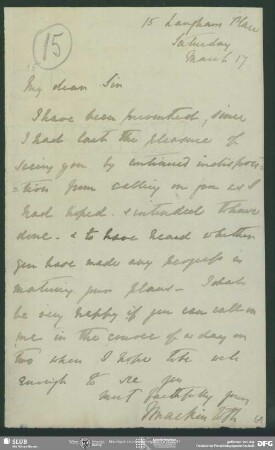 15 Langham Place
Saturday
March 17
15
My dear Sir
I have been prevented, since
I had last the pleasure of
seeing you by continued indisposi-
=tion from calling on you as I
had hoped & intended to have
done - & to have heard whether
you have made any progress in
maturing your plans - I shall
be very happy if you can call on
me in the course of a day or
two when I hope to be well
enough to see you
most faithfully yours
SLUB
DFG